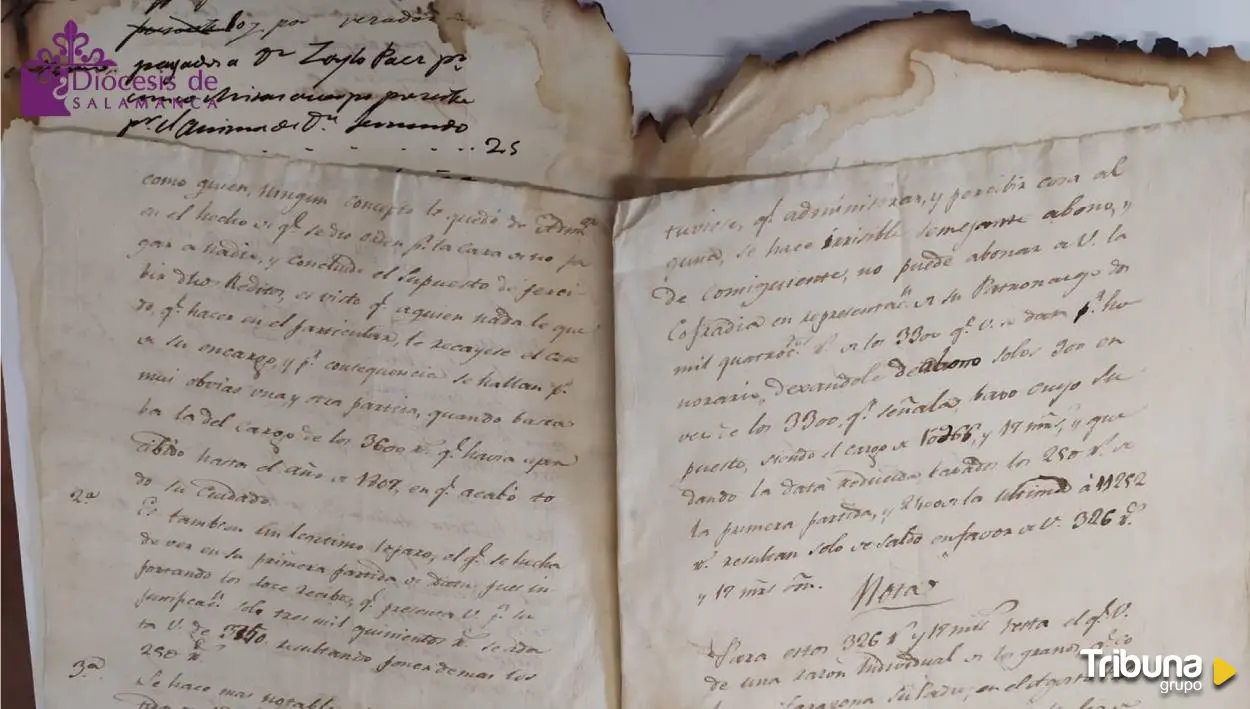 por verado
pagados a Dn Zoylo Paer pr
pr el Anima de Dn Fernando
25
Diócesis de
SALAMANCA
como quien, ningun concepto le quedó de
en el hecho de qe se dio orden pa la Casa de no pa
gar a nadie, y concluide el supuesto de perci
bir dhos Reditos, es visto qe a quien nada le que
do, qe hacer en el particular, le recayese el
de su encargo, y pr consequencia se hallan pr
mui obvias una y otra partida, quando basta
ba la del cargo de los 3600 rs qe havia
cibido hasta el año de 1807, en qe acabó to
do su cuidado.
2a
Es tambien un lexitimo reparo, el qe se hecha
de ver en su primera partida de Data, pues im
portando los doce recibos, qe presenta V. pr su
tres mil quinientos rs se
ta V. de 3750 resultando poner demas los
250 rs
3a
Se hace mas notable
tuviese, qe administrar, y percibir cosa al
guna, se hace irrisible semejante abono, y
de consiguiente, no puede abonar a V. la
Cofradia en representacn de su Patronazgo dos
mil quatrocs rs de los 3300 qe V. se data pr ho
norario, dexandole de abono solos 900 en
vez de los 3300, qe señala, baxo cuyo su
puesto, siendo el cargo de 10266, y 17 mrs, y que
dando la data reducida, baxados los 250 rs de
la primera partida, y 2400 de la ultima á 11252
rs resultan solo de saldo en favor de V. 326 rs
y 17 mrs vn.
Nota
Para estos 326 rs y 17 mrs resta el qe V.
de una razon Individual de los granos, qe
en el Agosto
Tribuna
grupo